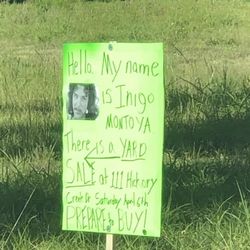 Hello. My name
is Inigo
MONTOYA
There is a YARD
SALE at 111 Hickory
Creek Dr Saturday April 6th
PREPARE to BUY!